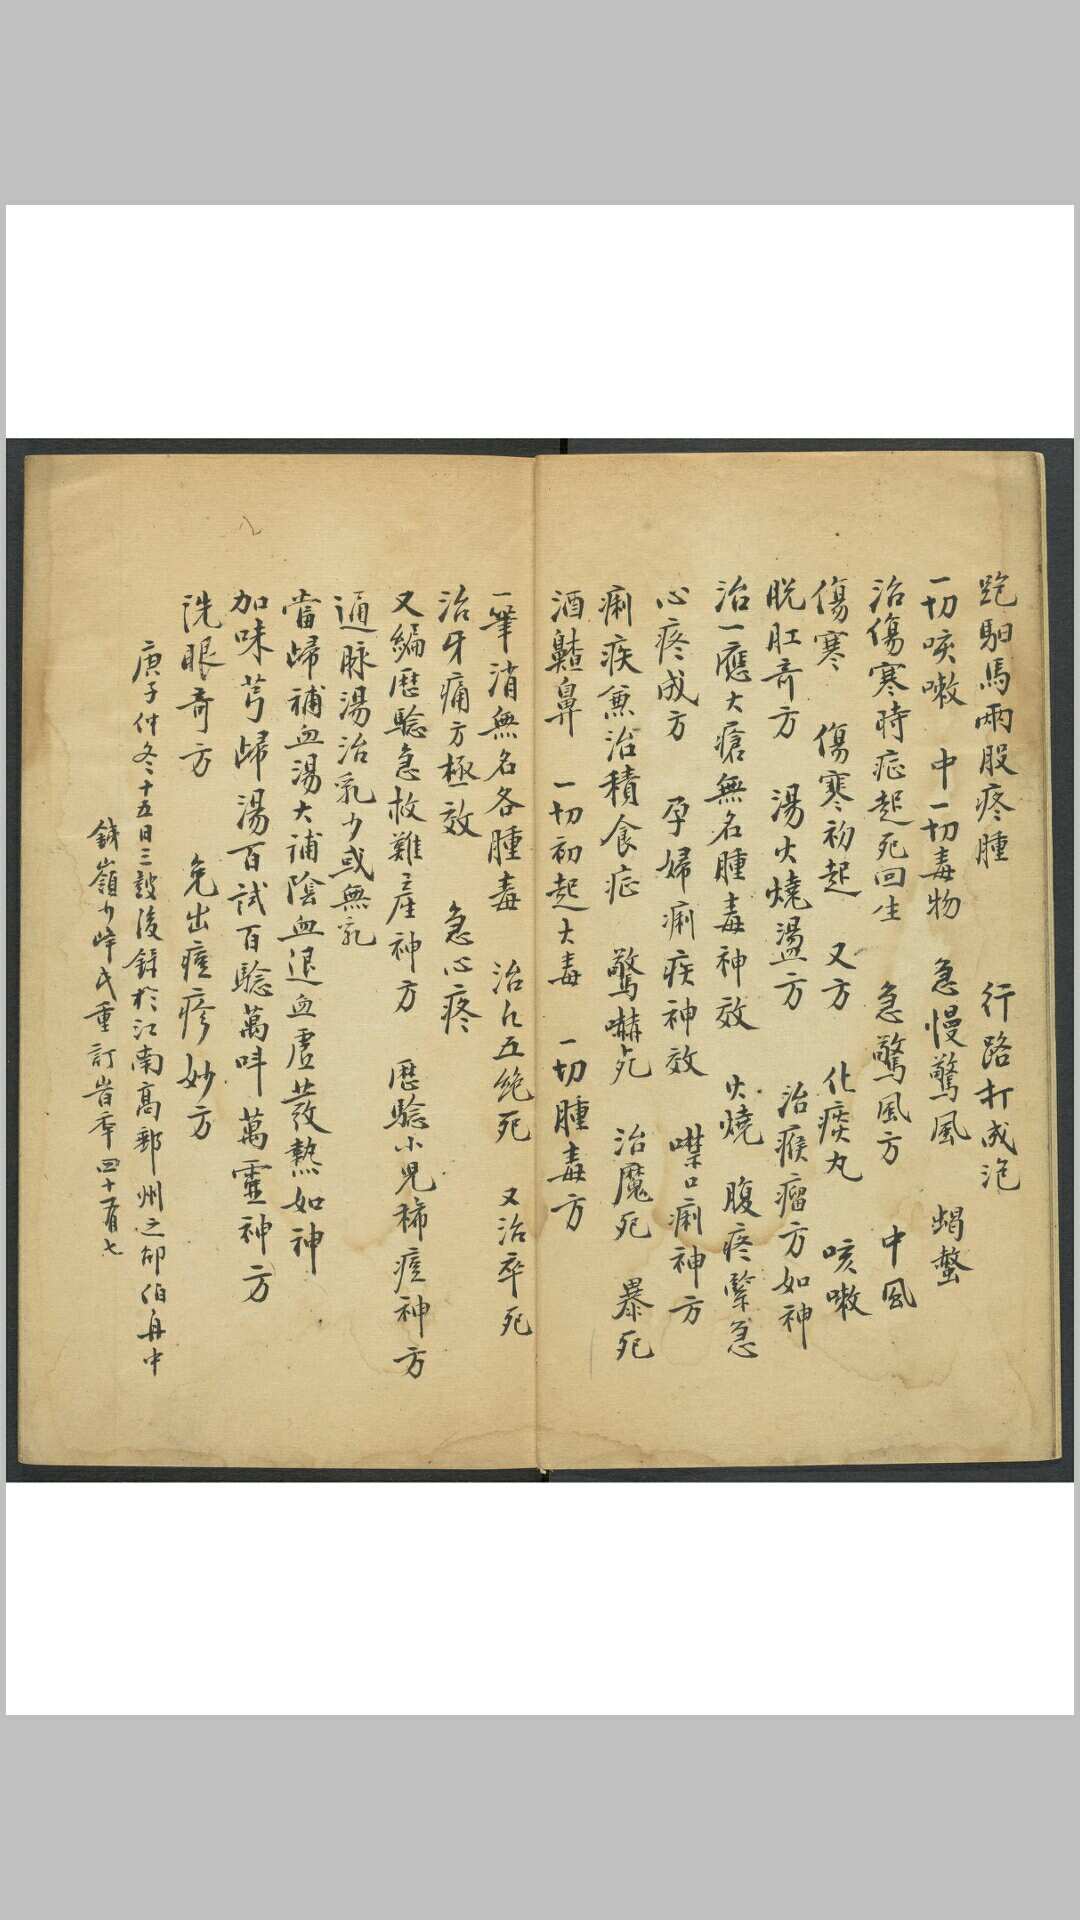 跑馹馬兩股疼腫　行路打成泡
一切咳嗽　中一切毒物　急慢驚風　蝎螫
治傷寒時症起死回生　急驚風方　中風
傷寒　傷寒初起　又方　化痰丸　咳嗽
脫肛奇方　湯火燒盪方　治瘊瘤方如神
治一應大瘡無名腫毒神效　火燒　腹疼緊急
心疼成方　孕婦痢疾神效　噤口痢神方
痢疾兼治積食症　驚嚇死　治魔死　暴死
酒齄鼻　一切初起大毒　一切腫毒方
一筆消無名各腫毒　治五絕死　又治卒死
治牙痛方極效　急心疼
又編歷驗急救難產神方　歷驗小兒稀痘神方
通脉湯治乳少或無乳
當歸補血湯大補陰血退血虛發熱如神
加味芎歸湯百試百驗萬呌萬靈神方
洗眼奇方　免出痘疹妙方
庚子仲冬十五日三鼓後錄於江南高郵州之邵伯舟中
鐵嶺少峰氏重訂峕年四十有七